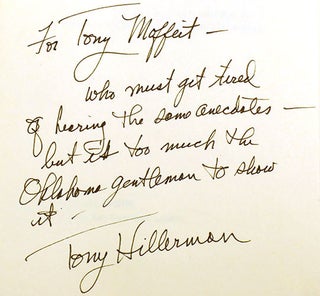 For Tony Moffeit —
who must get tired
of hearing the same anecdotes —
but it's too much the
Oklahoma gentleman to show
it -
Tony Hillerman